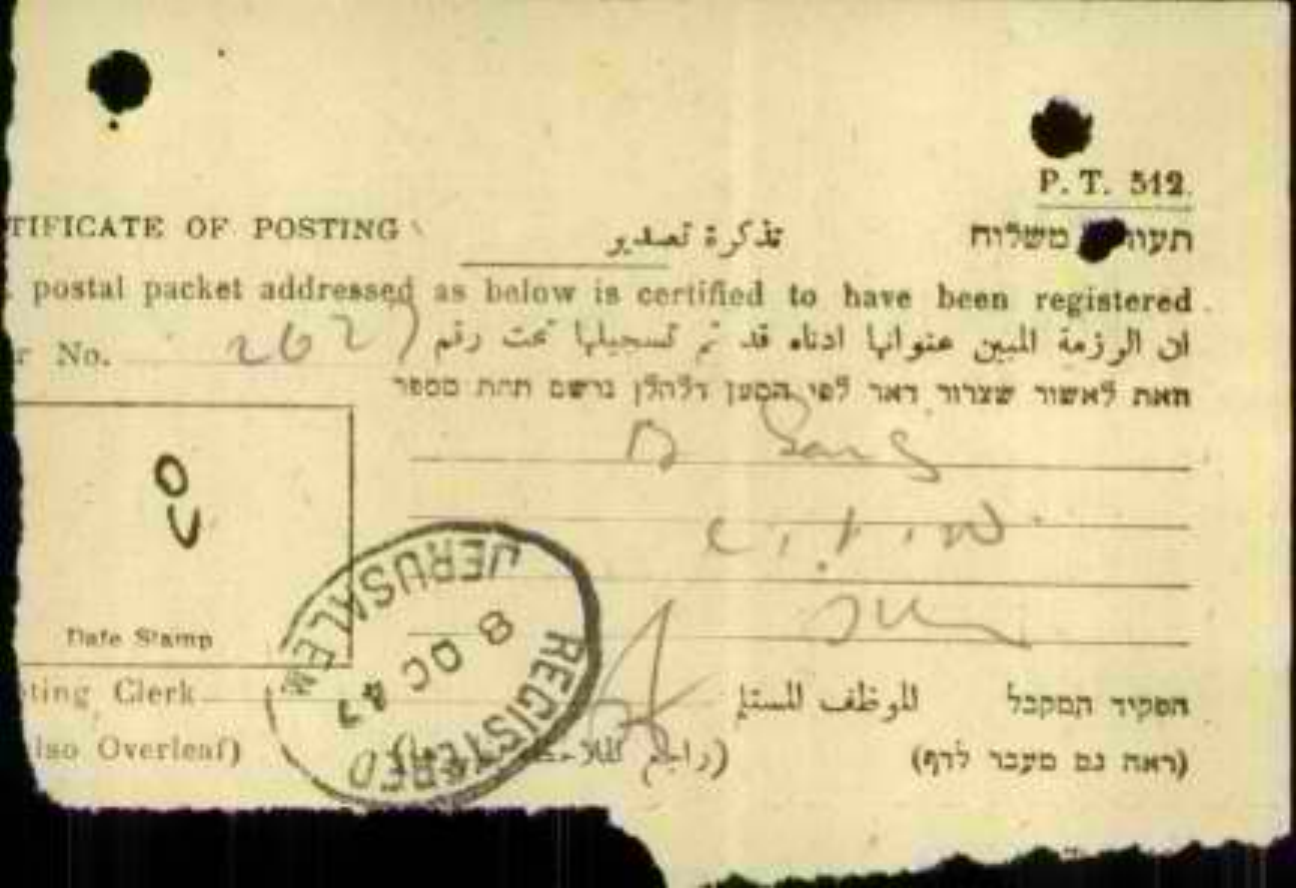 P. T. 512.
TIFICATE OF POSTING تذكرة تصدير תעו משלוח
postal packet addressed as below is certified to have been registered
r No. 2627 ان الرزمة المبين عنوانها ادناه قد تم تسجيلها تحت رقم
וזאת לאשור שצרור דאר לפי המען דלהלן נרשם תחת מספר
Date Stamp
JERUSALEM
8 OC 47
REGISTERED
ting Clerk للموظف المستلم הפקיד המקבל
lso Overleaf) (ראה גם מעבר לדף)